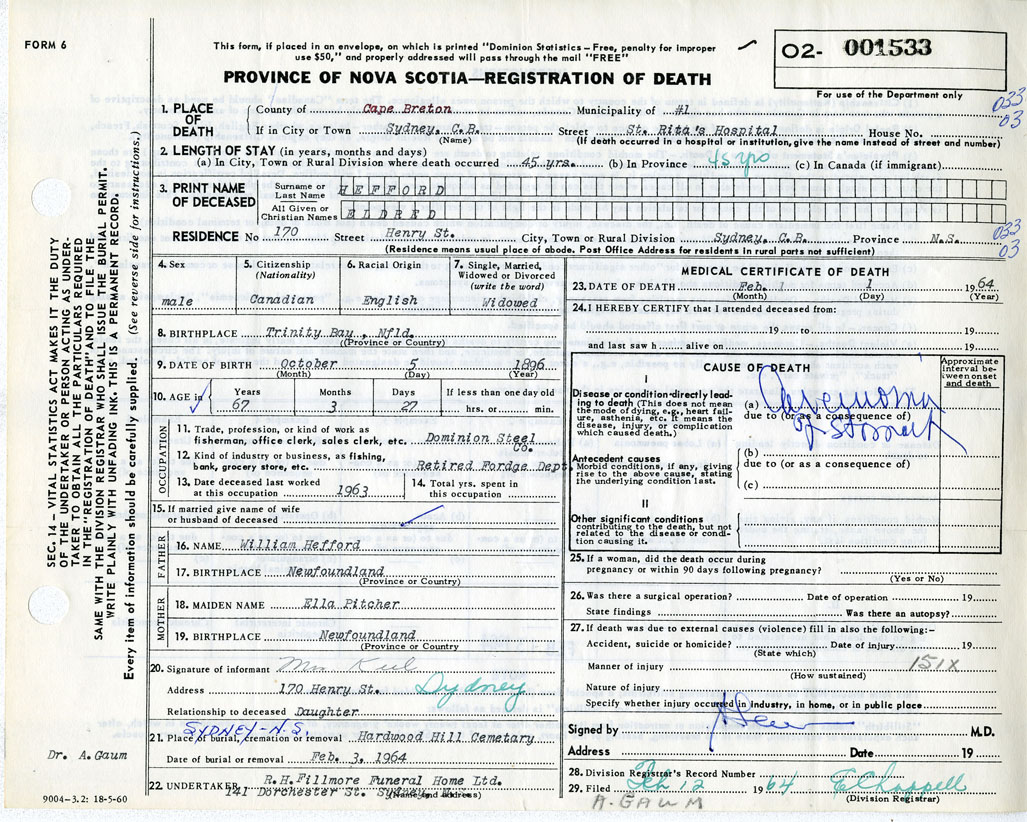 FORM 6
This form, if placed in an envelope, on which is printed "Dominion Statistics – Free, penalty for improper
use $50," and properly addressed will pass through the mail "FREE"
PROVINCE OF NOVA SCOTIA—REGISTRATION OF DEATH
O2- 001533
For use of the Department only
033
03
1. PLACE OF DEATH
County of Cape Breton Municipality of #1
If in City or Town Sydney, C.B. Street St. Rita's Hospital House No.
(Name) (If death occurred in a hospital or institution, give the name instead of street and number)
2. LENGTH OF STAY (in years, months and days)
(a) In City, Town or Rural Division where death occurred 45 yrs. (b) In Province 45 yrs (c) In Canada (if immigrant)
3. PRINT NAME OF DECEASED
Surname or Last Name HEFFORD
All Given or Christian Names ELDRED
033
03
RESIDENCE No 170 Street Henry St. City, Town or Rural Division Sydney, C.B. Province N.S.
(Residence means usual place of abode. Post Office Address for residents in rural parts not sufficient)
4. Sex
male
5. Citizenship
(Nationality)
Canadian
6. Racial Origin
English
7. Single, Married,
Widowed or Divorced
(write the word)
Widowed
8. BIRTHPLACE Trinity Bay, Nfld.
(Province or Country)
9. DATE OF BIRTH October 5 1896
(Month) (Day) (Year)
10. AGE in
Years Months Days If less than one day old
67 3 27 hrs. or min.
OCCUPATION
11. Trade, profession, or kind of work as
fisherman, office clerk, sales clerk, etc. Dominion Steel
Co.
12. Kind of industry or business, as fishing,
bank, grocery store, etc. Retired Fordge Dept
13. Date deceased last worked
at this occupation 1963
14. Total yrs. spent in
this occupation
15. If married give name of wife
or husband of deceased
FATHER
16. NAME William Hefford
17. BIRTHPLACE Newfoundland
(Province or Country)
MOTHER
18. MAIDEN NAME Ella Pitcher
19. BIRTHPLACE Newfoundland
(Province or Country
20. Signature of informant Mrs
Address 170 Henry St. Sydney
Relationship to deceased Daughter
SYDNEY-N.S.
21. Place of burial, cremation or removal Hardwood Hill Cemetary
Date of burial or removal Feb. 3, 1964
22. UNDERTAKER R.H. Fillmore Funeral Home Ltd.
141 Dorchester St. Sydney, N.S.
(Name and address)
MEDICAL CERTIFICATE OF DEATH
23. DATE OF DEATH Feb. 1 1 1964
(Month) (Day) (Year)
24. I HEREBY CERTIFY that I attended deceased from:
19 to 19
and last saw h alive on 19
CAUSE OF DEATH
Approximate interval between onset and death
I
Disease or condition directly leading to death (This does not mean the mode of dying, e.g., heart failure, asthenia, etc. It means the disease, injury, or complication which caused death.)
(a) Carcinoma
due to (or as a consequence of)
of stomach
Antecedent causes
Morbid conditions, if any, giving rise to the above cause, stating the underlying condition last.
(b)
due to (or as a consequence of)
(c)
II
Other significant conditions
contributing to the death, but not related to the disease or condition causing it.
25. If a woman, did the death occur during
pregnancy or within 90 days following pregnancy?
(Yes or No)
26. Was there a surgical operation? Date of operation 19
State findings Was there an autopsy?
27. If death was due to external causes (violence) fill in also the following:–
Accident, suicide or homicide? Date of injury 19
(State which)
151X
Manner of injury
(How sustained)
Nature of injury
Specify whether injury occurred in industry, in home, or in public place
Signed by M.D.
Address Date 19
28. Division Registrar's Record Number
29. Filed Feb 12 1964 E Chappell
A. GAUM (Division Registrar)
SEC. 14 – VITAL STATISTICS ACT MAKES IT THE DUTY
OF THE UNDERTAKER OR PERSON ACTING AS UNDER-
TAKER TO OBTAIN ALL THE PARTICULARS REQUIRED
IN THE "REGISTRATION OF DEATH" AND TO FILE THE
SAME WITH THE DIVISION REGISTRAR WHO SHALL ISSUE THE BURIAL PERMIT.
WRITE PLAINLY WITH UNFADING INK. THIS IS A PERMANENT RECORD.
Every item of information should be carefully supplied. (See reverse side for instructions.)
Dr. A. Gaum
9004–3.2: 18-5-60